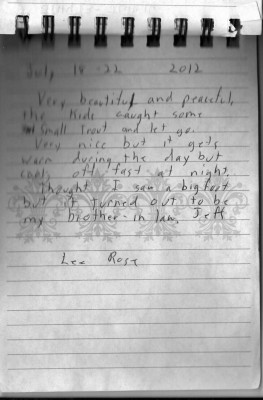 July 18-22 2012
Very beautiful and peaceful,
the kids caught some
small trout and let go.
Very nice but it gets
warm during the day but
cools off fast at night.
Thought I saw a bigfoot
but it turned out to be
my brother-in law, Jeff
Lee Rose